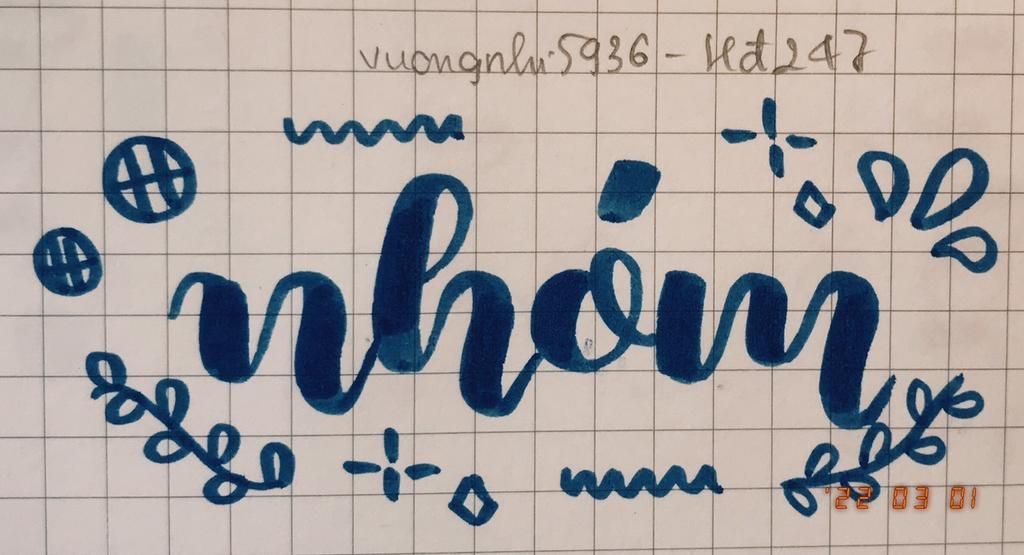 vuongnhi5936 - Hd247
nhóm
'22 03 01